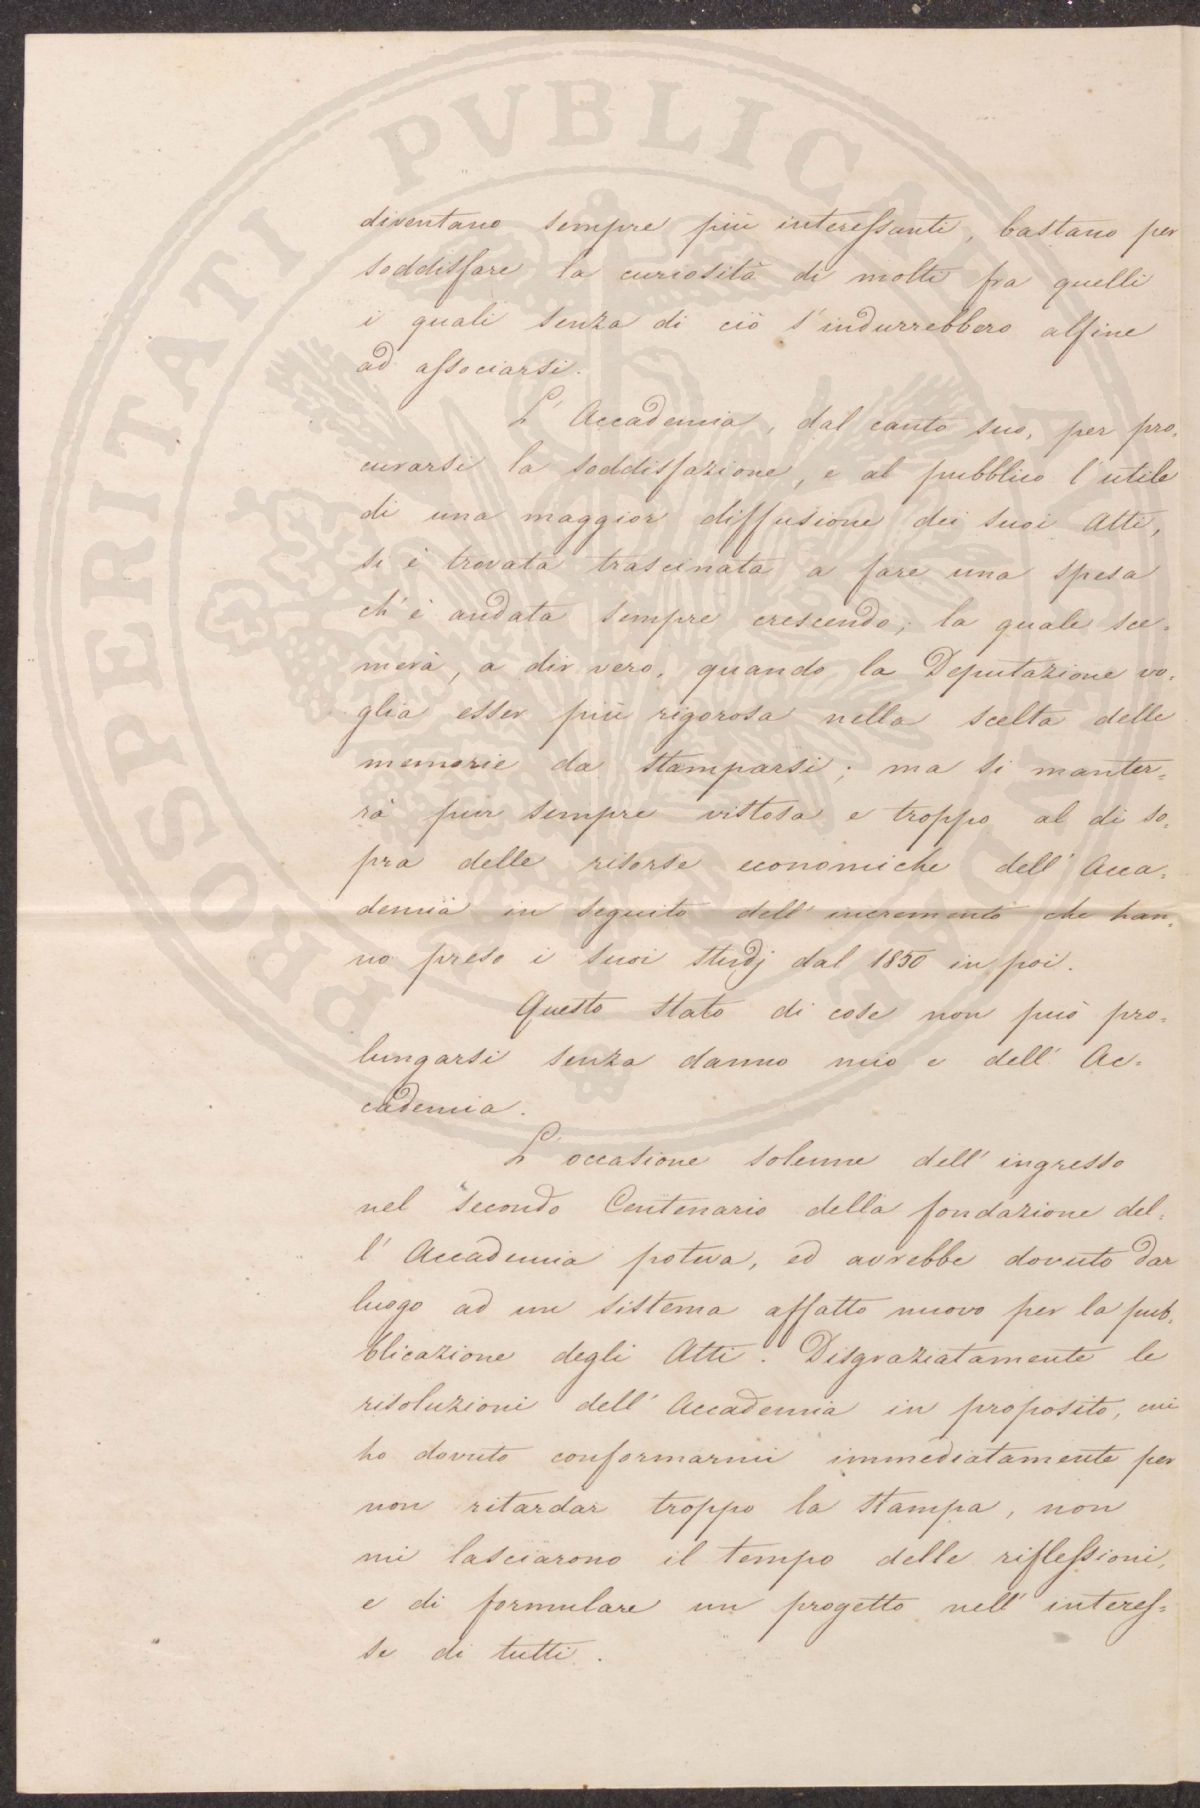 diventano sempre più interessanti, bastano per
soddisfare la curiosità di molti fra quelli
i quali senza di ciò s'indurrebbero alfine
ad associarsi.
L'Accademia, dal canto suo, per pro=
curarsi la soddisfazione, e al pubblico l'utile
di una maggior diffusione dei suoi Atti,
si è trovata trascinata a fare una spesa
ch'è andata sempre crescendo; la quale sce=
merà, a dir vero, quando la Deputazione vo=
glia esser più rigorosa nella scelta delle
memorie da stamparsi; ma si manter=
rà pur sempre vistosa e troppo al di so=
pra delle risorse economiche dell'Acca=
demia in seguito dell'incremento che han=
no preso i suoi studj dal 1850 in poi.
Questo stato di cose non può pro=
lungarsi senza danno mio e dell'Ac=
cademia.
L'occasione solenne dell'ingresso
nel secondo Centenario della fondazione del=
l'Accademia poteva, ed avrebbe dovuto dar
luogo ad un sistema affatto nuovo per la pub=
blicazione degli Atti. Disgraziatamente le
risoluzioni dell'Accademia in proposito, cui
ho dovuto conformarmi immediatamente per
non ritardar troppo la stampa, non
mi lasciarono il tempo delle riflessioni,
e di formulare un progetto nell'interes=
se di tutti.
PROSPERITATI PVBLICAE